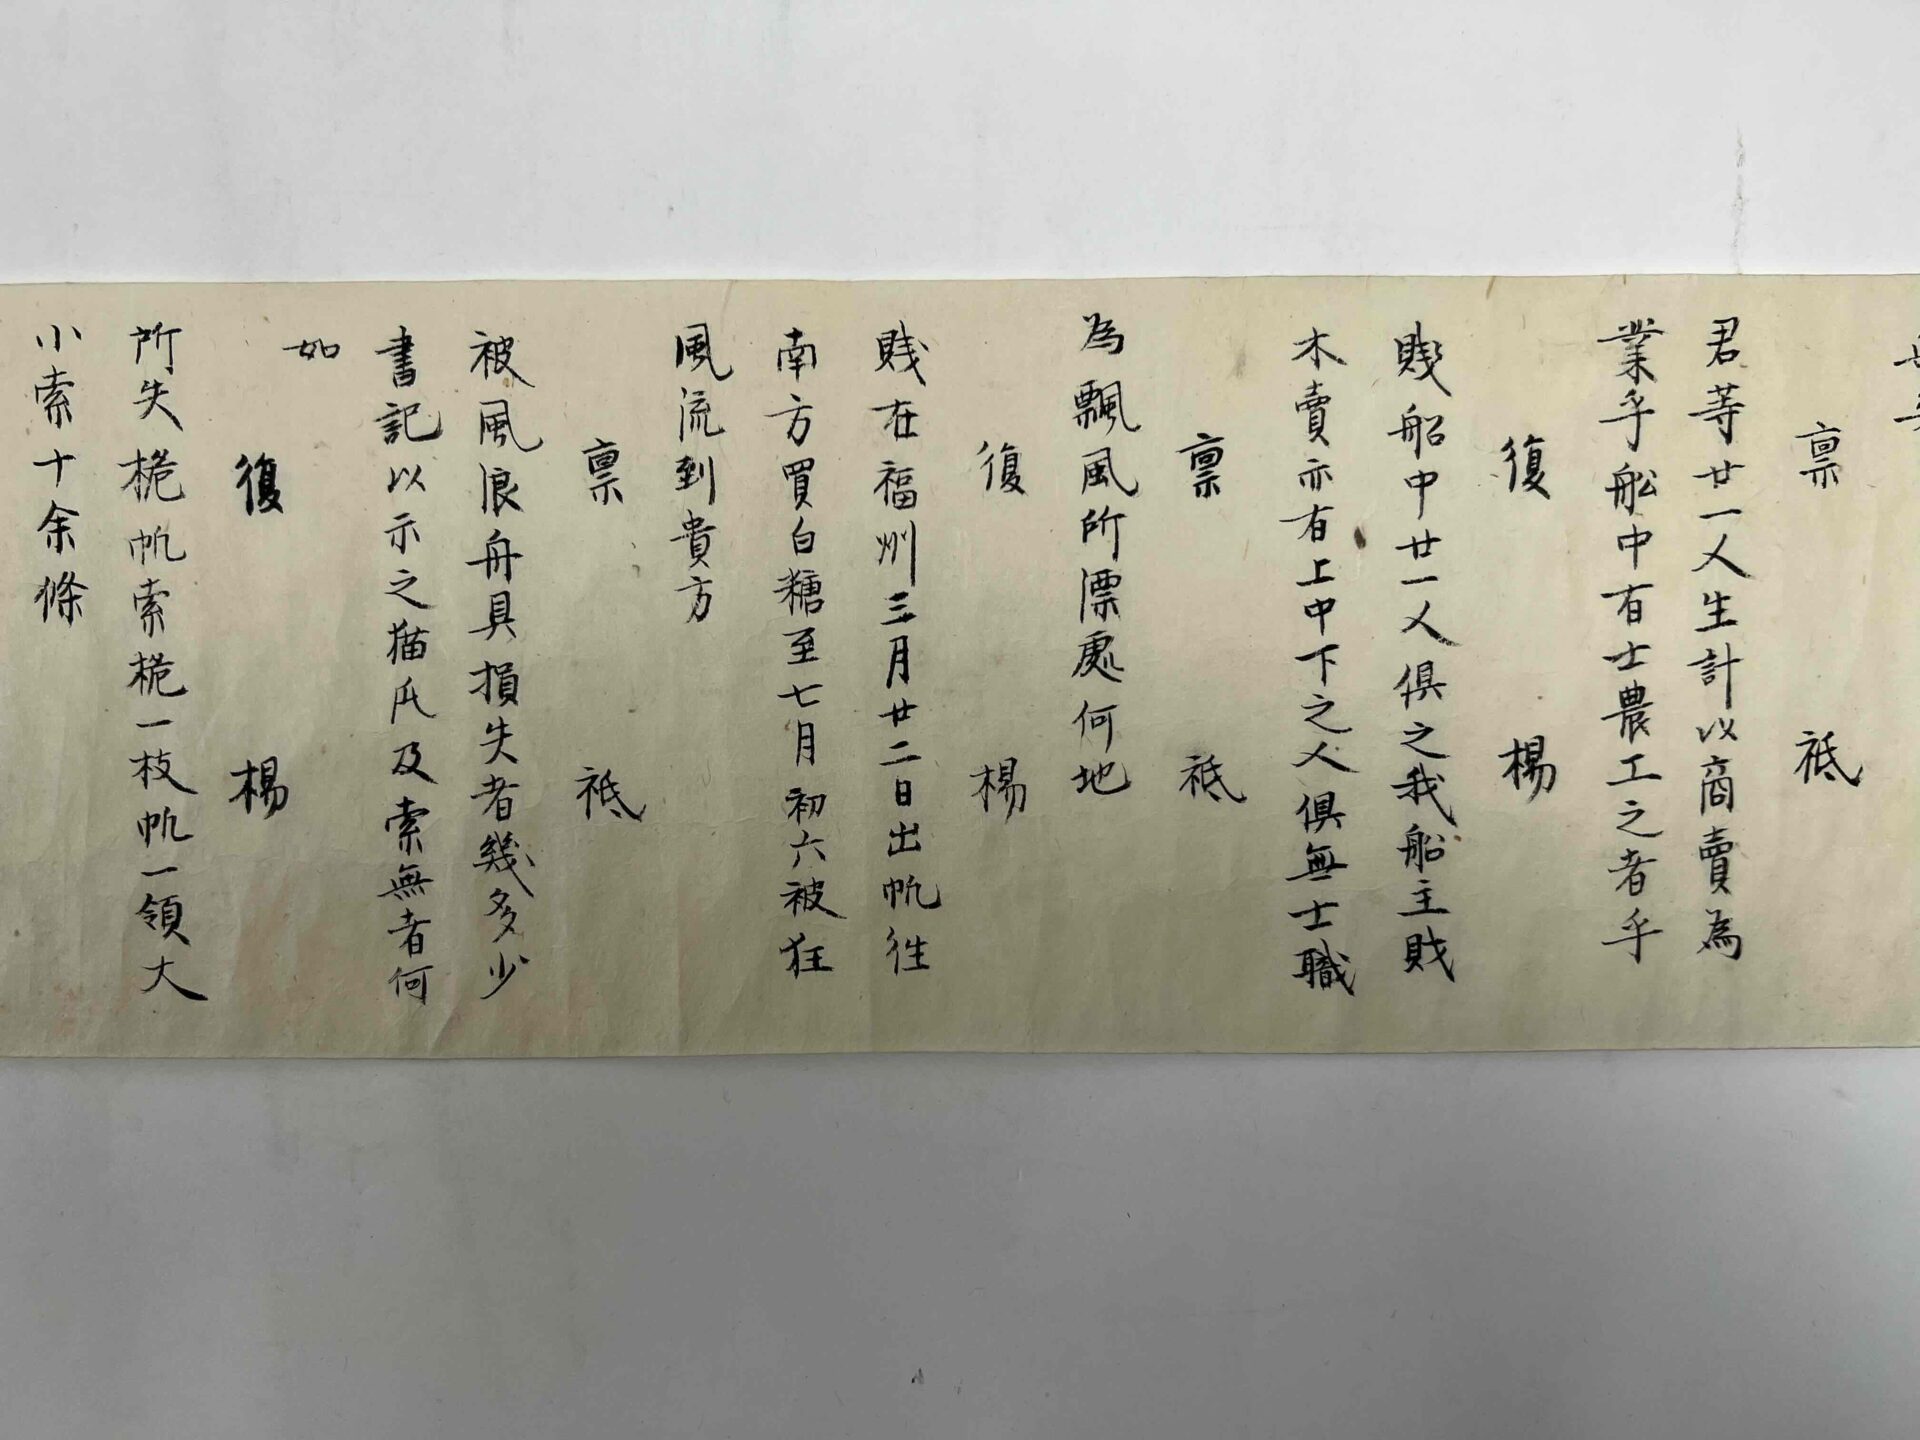 稟 祗
君等廿一人生計以商賣為
業乎船中有士農工之者乎
復 楊
賤船中廿一人俱之我船主賤
木賣亦有上中下之人俱無士職
稟 祗
為飄風所漂處何地
復 楊
賤在福州三月廿二日出帆往
南方買白糖至七月初六被狂
風流到貴方
稟 祗
被風浪舟具損失者幾多少
書記以示之猫爪及索無者何
如
復 楊
所失桅帆索桅一枝帆一領大
小索十余條